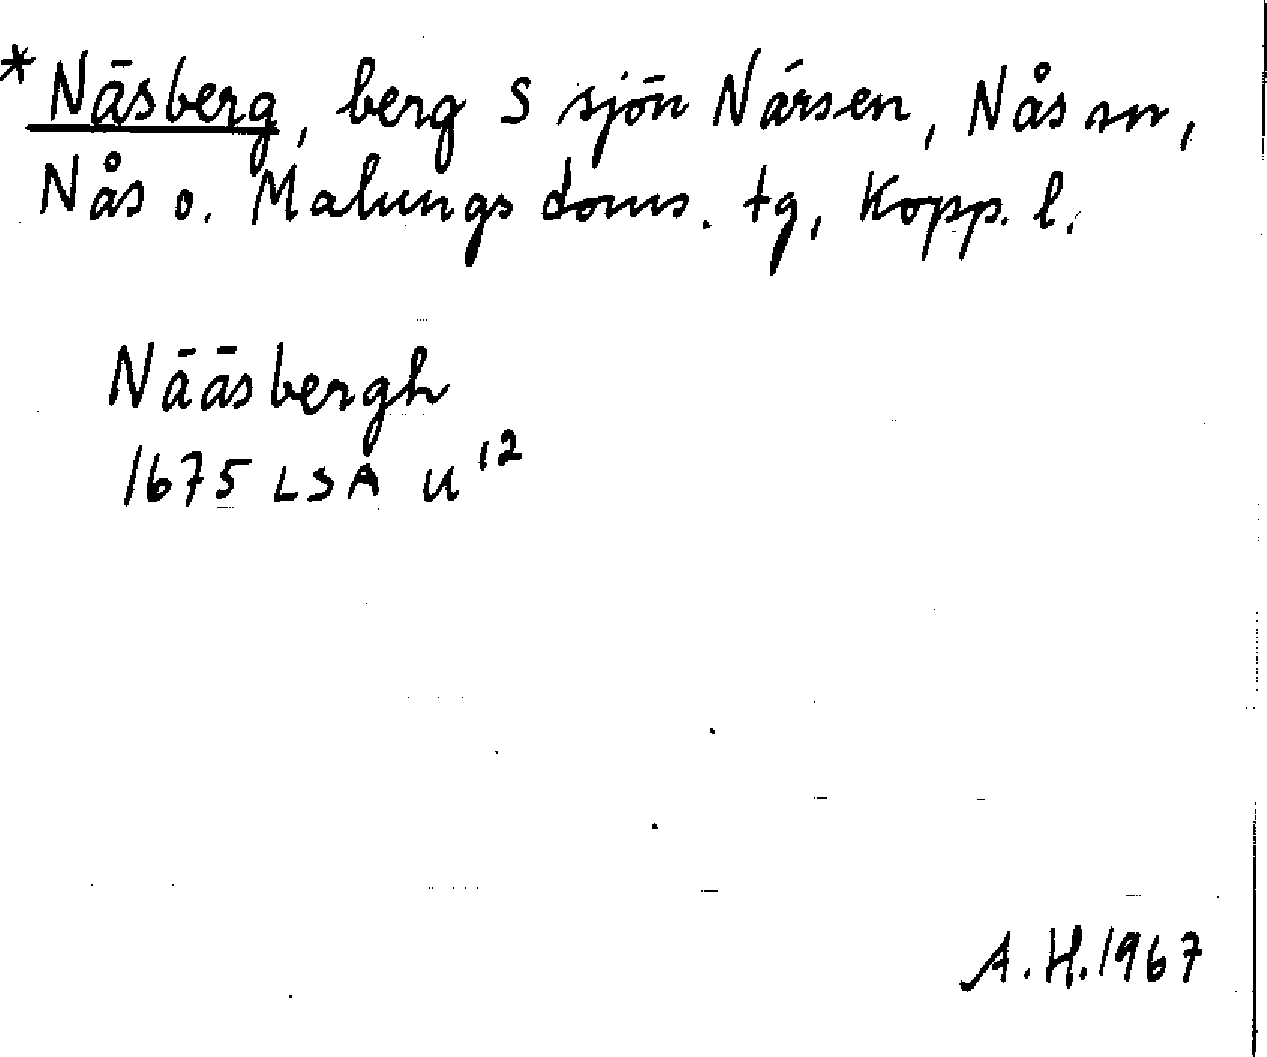 *Näsberg, berg S sjön Närsen, Nås sn,
Nås o. Malungs doms. tg, Kopp. l.
Nääsbergh
1675 LSA U 12
A.H. 1967